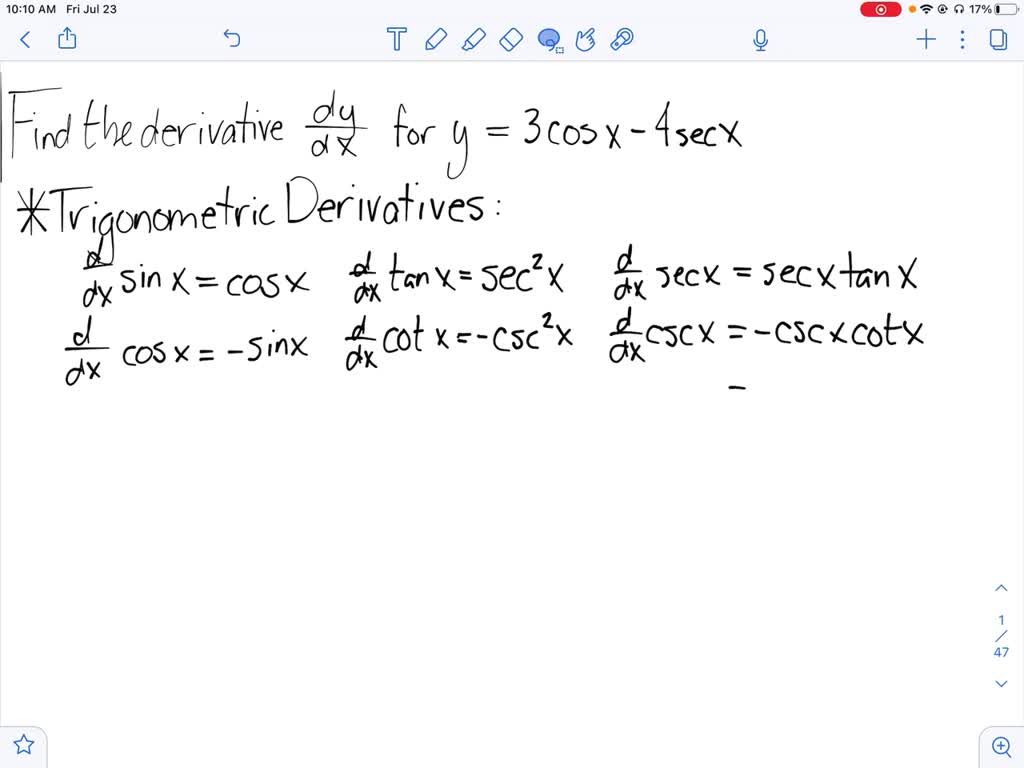 10:10 AM Fri Jul 23 17%
Find the derivative dy/dx for y = 3cosx - 4secx
*Trigonometric Derivatives:
d/dx sin x = cosx d/dx tan x = sec²x d/dx secx = secxtanx
d/dx cosx = -sinx d/dx cot x = -csc²x d/dx cscx = -cscxcotx
-
1
/
47